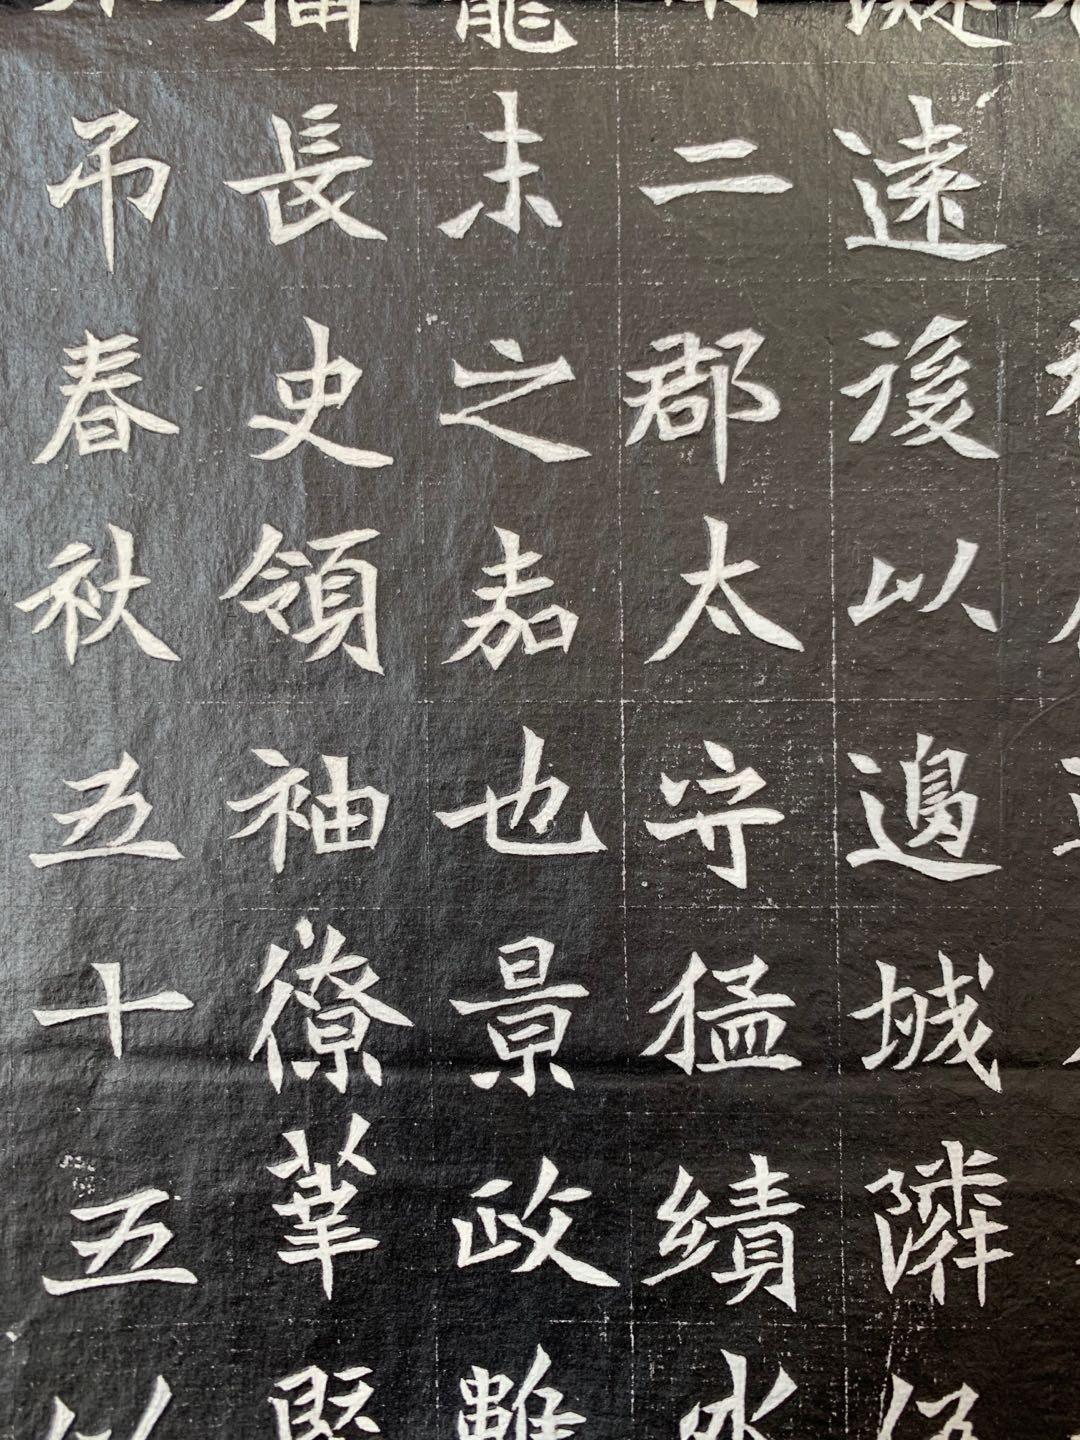 遠後以邊城隣
二郡太守猛績
未之嘉也景政雖
長史領袖僚
吊春秋五十五以